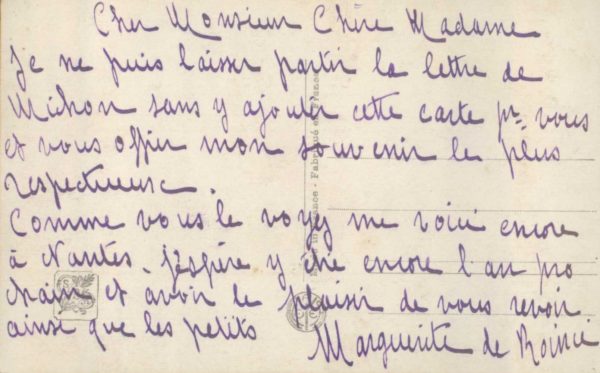 Cher Monsieur Chère Madame
Je ne puis laisser partir la lettre de
Michon sans y ajouter cette carte pr. vous
et vous offrir mon souvenir le plus
respectueuse.
Comme vous le voyez me voici encore
à Nantes. J'espère y être encore l'an pro
chain et avoir le plaisir de vous revoir
ainsi que les petits
Marguerite de
Fabriqué en France